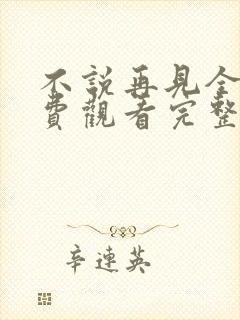 不說再見全
費觀看完整
辛連英